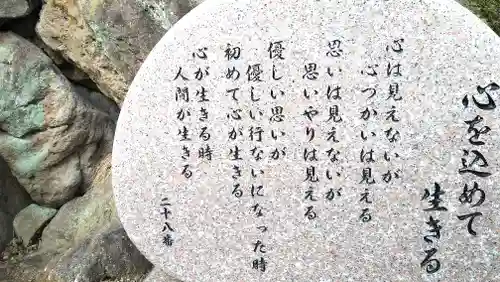 心を込めて
生きる
心は見えないが
心づかいは見える
思いは見えないが
思いやりは見える
優しい思いが
優しい行ないになった時
初めて心が生きる
心が生きる時
人間が生きる
二十八番